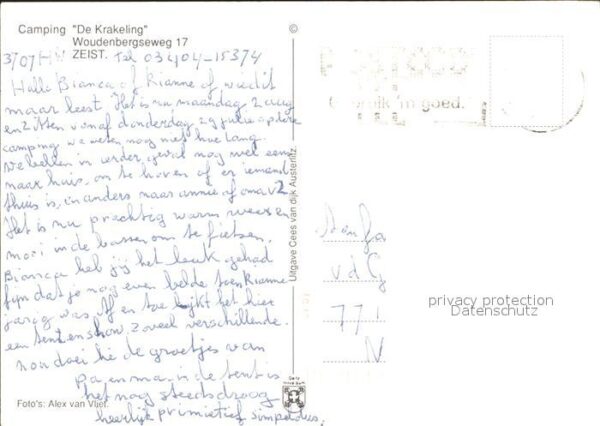 Camping "De Krakeling"
Woudenbergseweg 17
ZEIST. Tel 03404-15374
Hallo Bianca of Rianne of wie dit
maar leest. Het is nu maandag 2 aug
en zitten vanaf donderdag 29 julie op deze
camping we weten nog niet hoe lang.
we bellen in ieder geval nog wel een
naar huis, om te horen of er iemand
thuis is, en anders naar annie of oma v Z
Het is nu prachtig warm weer en
mooi in de bossen om te fietsen.
Bianca heb jij het leuk gehad
fijn dat je nog even belde toen Rianne
jarig was. Af en toe lijkt het hier
een tentenshow zoveel verschillende.
nou doei hè de groetjes van
pa en ma in de tent is
het nog steeds droog
heerlijk primietief simpel dus.
Foto's: Alex van Vliet.
©
Uitgave Cees van dijk Austerlitz
'm goed.
Aan fa
v d G
77
N
privacy protection
Datenschutz